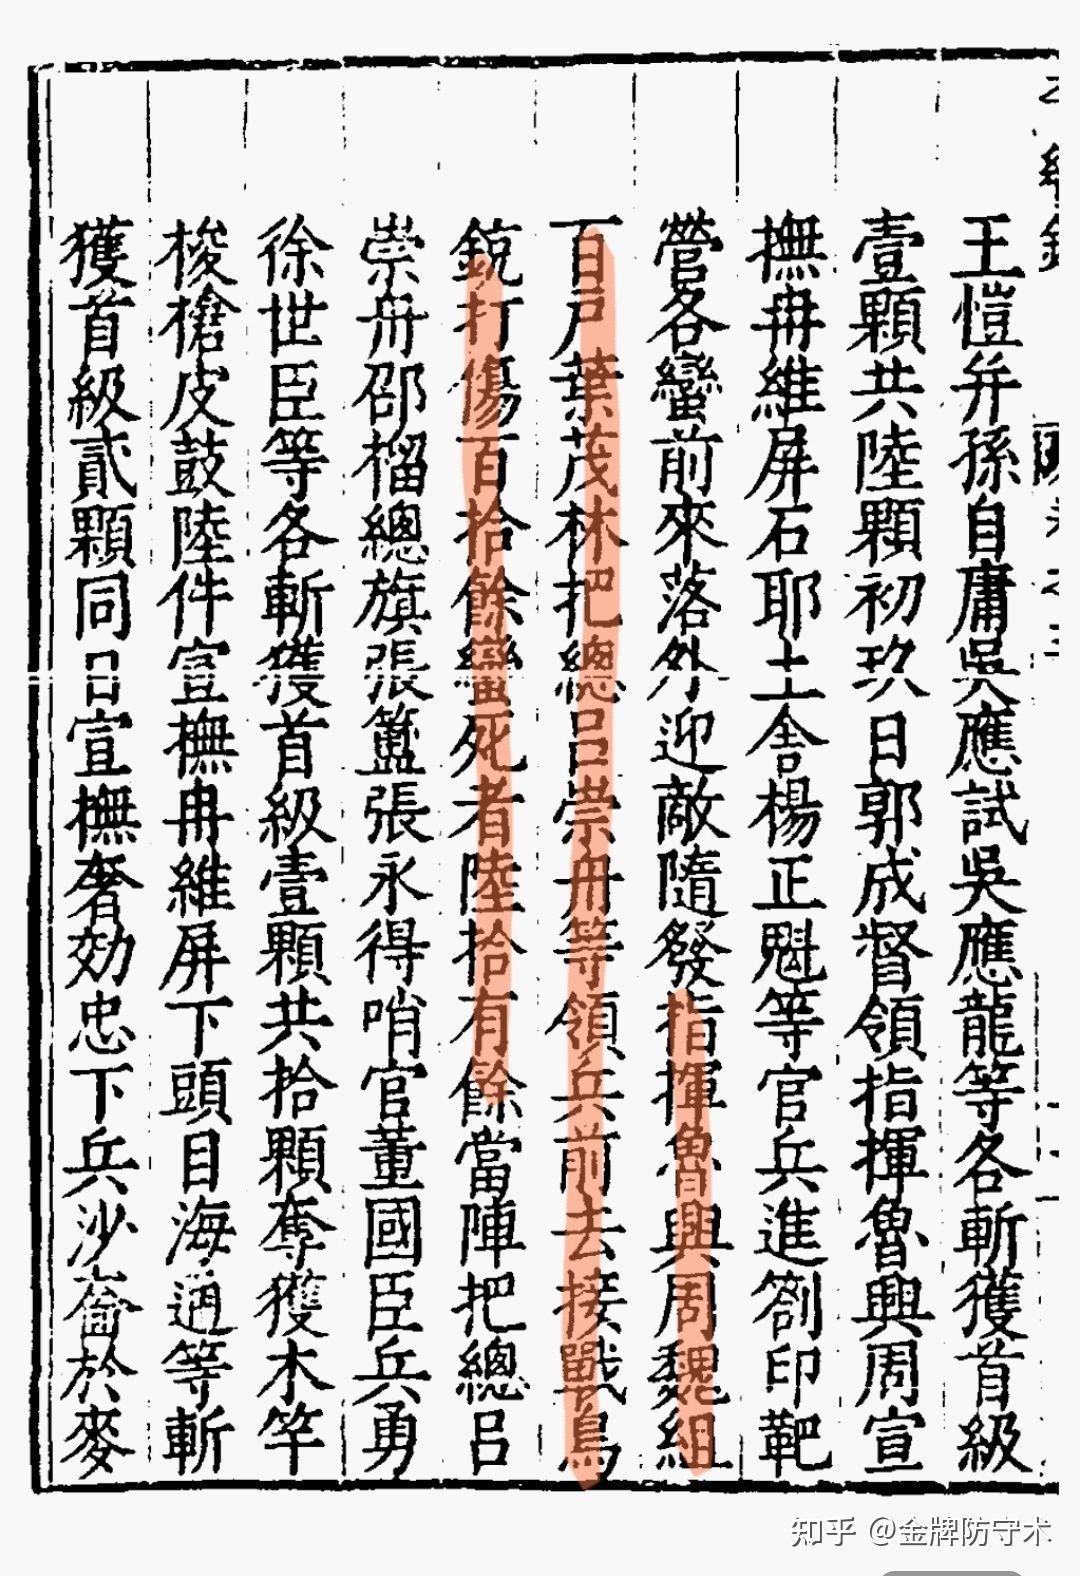 王愷并孫自庸吳應試吳應龍等各斬獲首級
壹顆共陸顆初玖日郭成督領指揮魯興周宣
撫冉維屏石耶土舍楊正魁等官兵進劄印靶
營各蠻前來落外迎敵隨發指揮魯興周魏組
百戶葉茂林把總呂崇舟等領兵前去接戰鳥
銃打傷百拾餘蠻死者陸拾有餘當陣把總呂
崇舟邵榴總旗張簠張永得哨官董國臣兵勇
徐世臣等各斬獲首級壹顆共拾顆奪獲木竿
梭槍皮鼓陸件宣撫冉維屏下頭目海通等斬
獲首級貳顆同日宣撫奢効忠下兵沙崙於麥
知乎 @金牌防守术